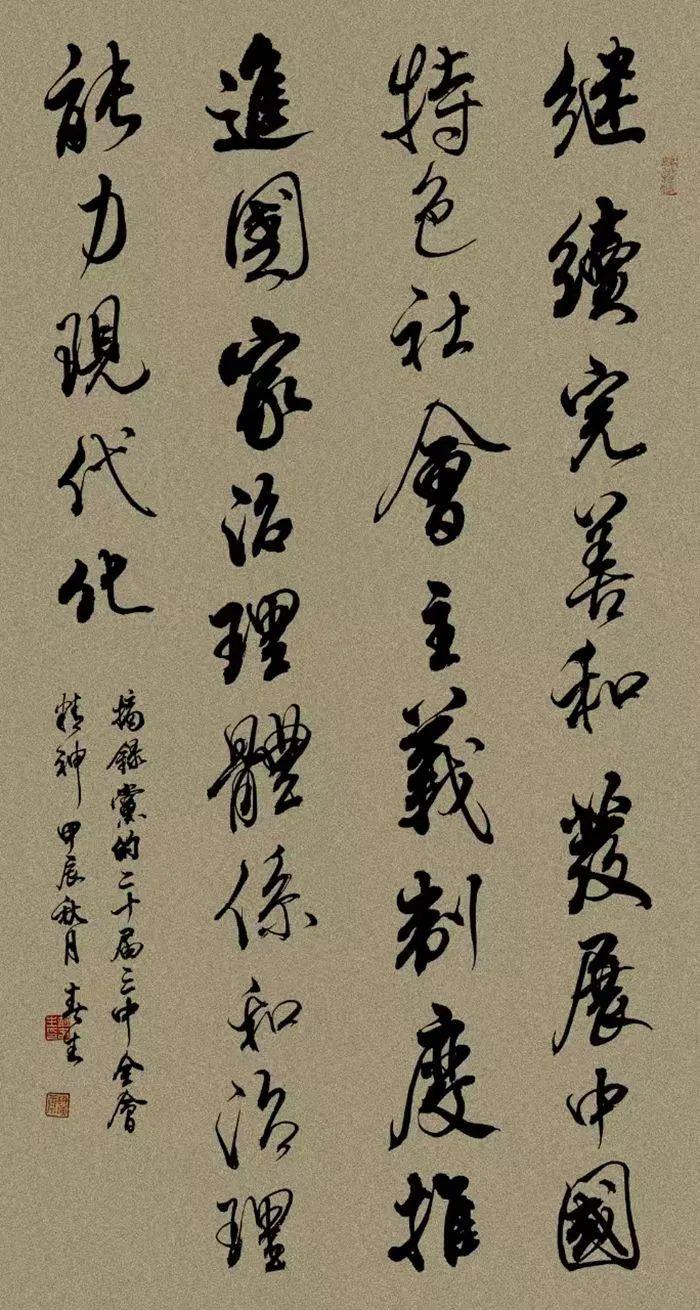 继續完善和發展中國
特色社會主義制度推
進國家治理體係和治理
能力現代化
摘錄黨的二十届三中全會
精神 甲辰秋月 春生